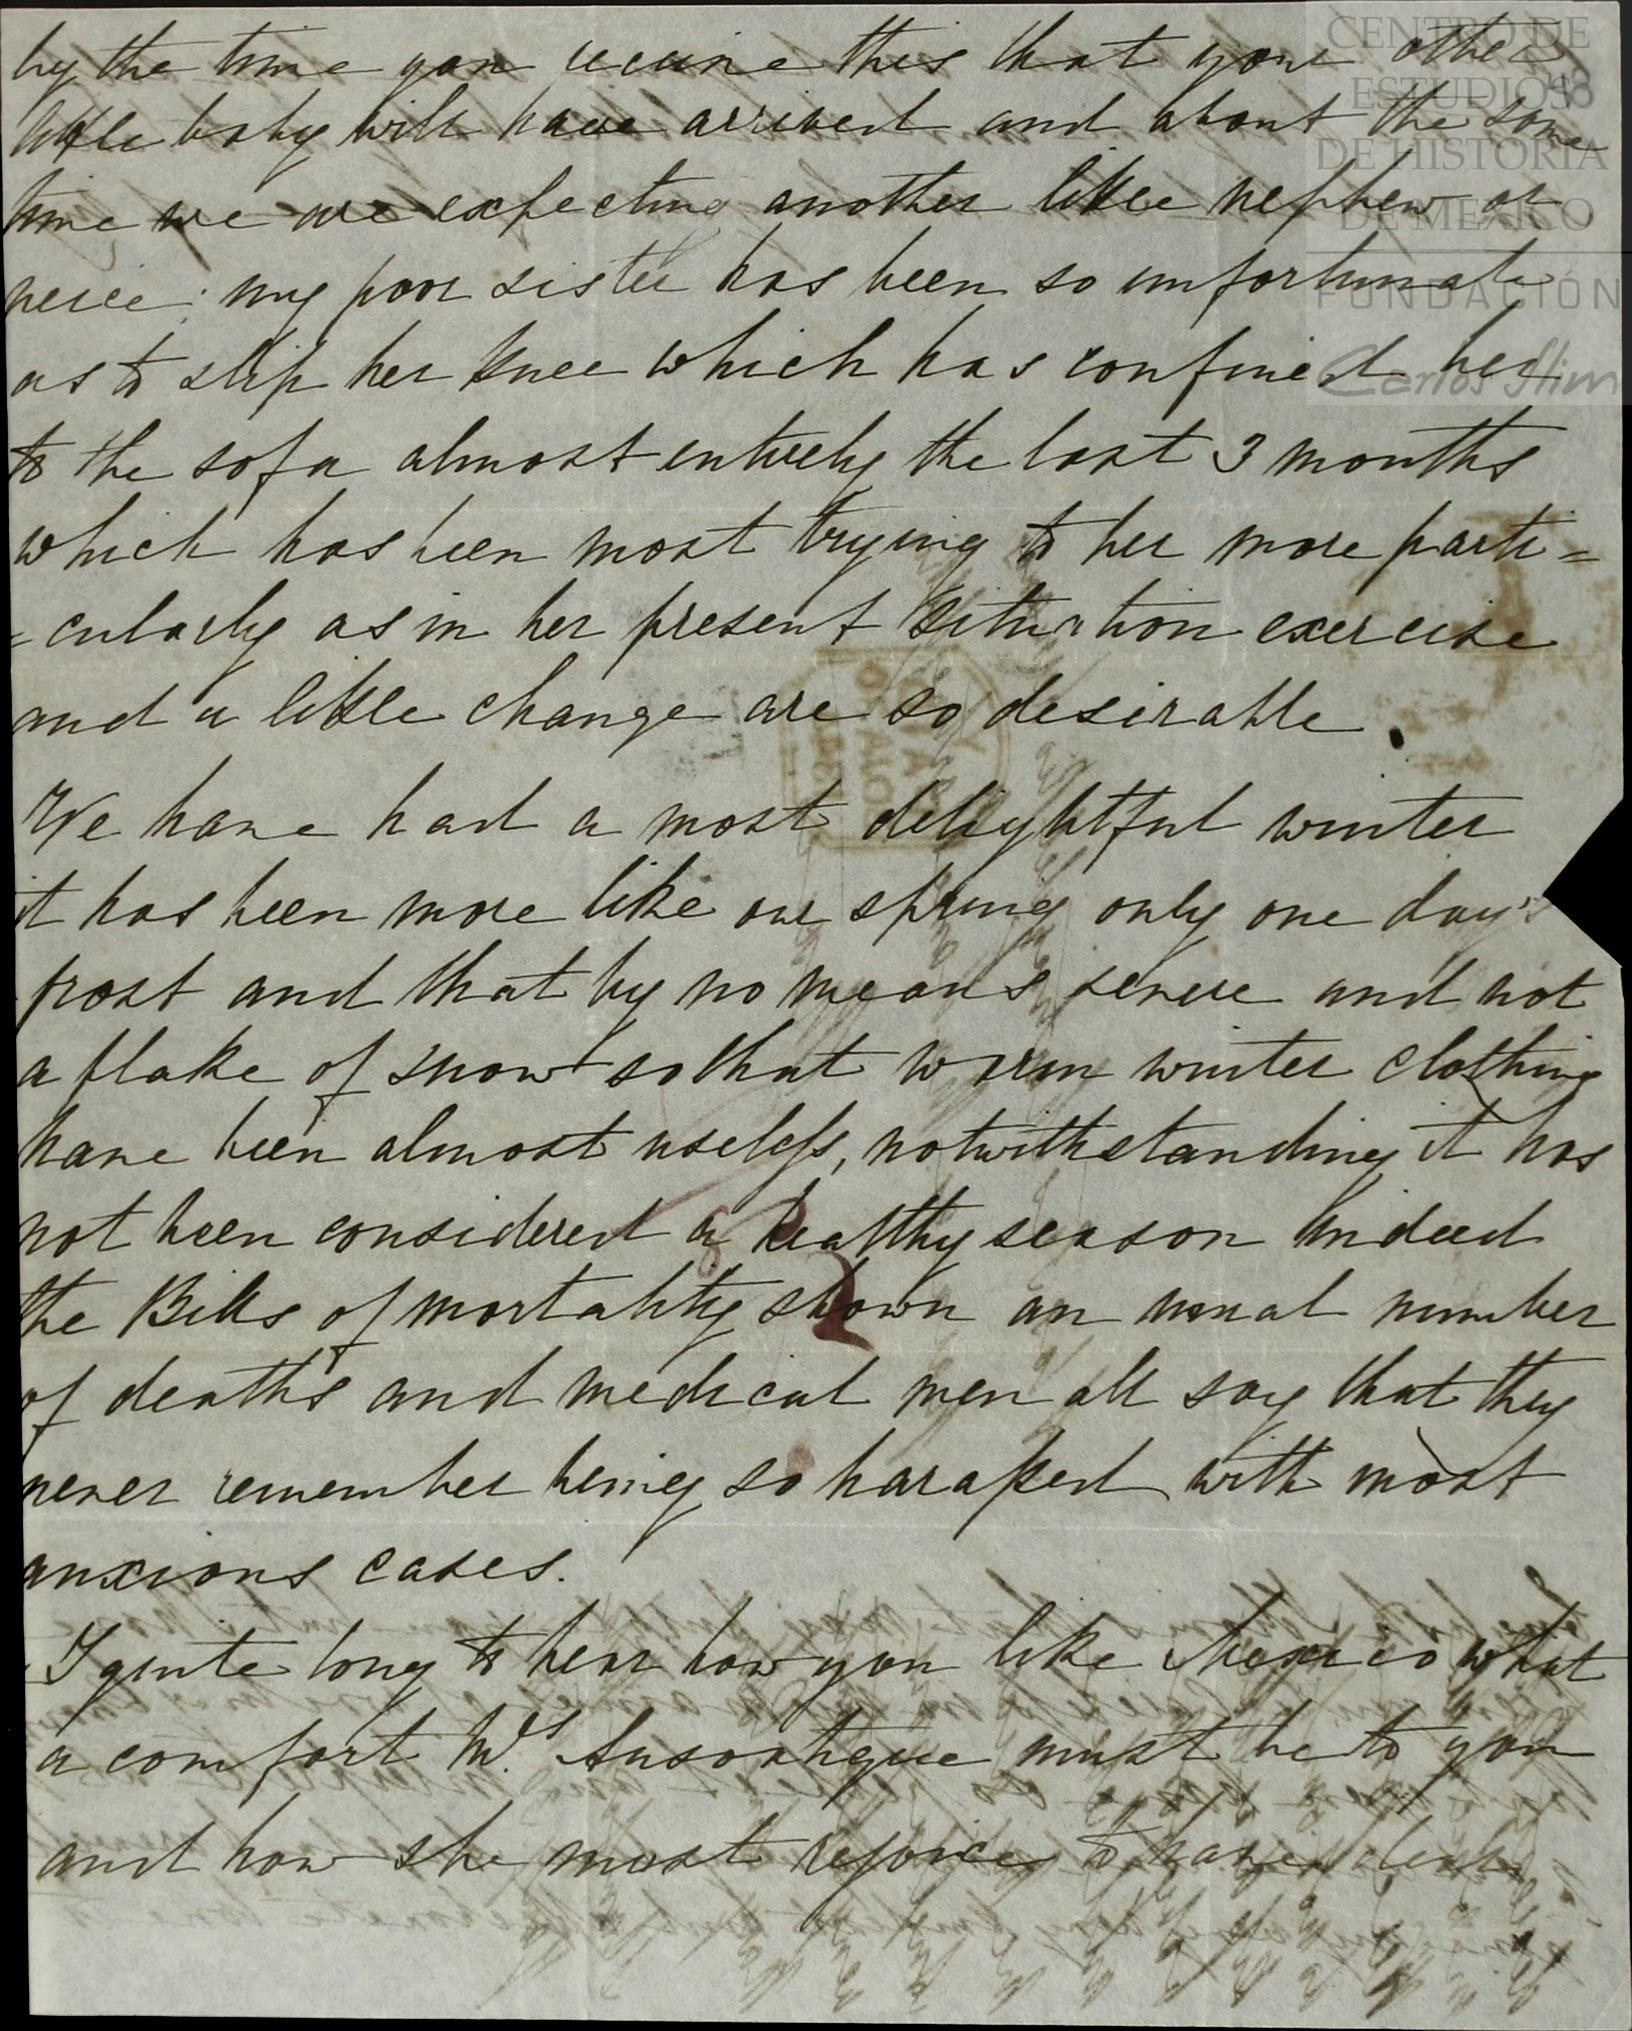 CENTRO DE
ESTUDIOS
DE HISTORIA
DE MÉXICO
FUNDACIÓN
Carlos Slim
by the time you receive this that your other
little baby will have arrived and about the same
time we are expecting another little nephew or
neice; my poor sister has been so unfortunate
as to slip her knee which has confined her
to the sofa almost entirely the last 3 months
which has been most trying to her more parti=
=cularly as in her present situation exercise
and a little change are so desirable.
We have had a most delightful winter
it has been more like our spring only one day's
frost and that by no means severe and not
a flake of snow so that warm winter clothing
have been almost useless, notwithstanding it has
not been considered a healthy season indeed
the Bills of mortality shown an usual number
of deaths and medical men all say that they
never remember being so harassed with most
anxious cases.
I quite long to hear how you like Mexico what
a comfort Mrs. must be to you
and how she must rejoice to have dear